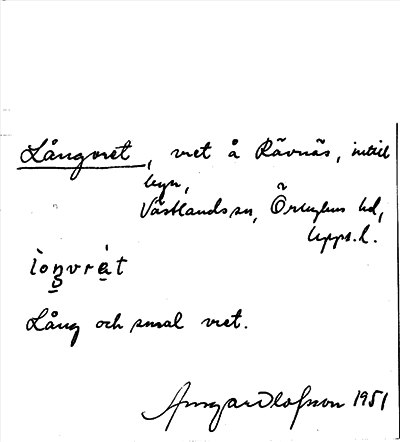 Långvret, vret å Rävnäs, intill
byn,
Västlands sn, Örbyhus hd,
Upps. l.
lоŋvrèt
Lång och smal vret.
Ansgar Olofsson 1951